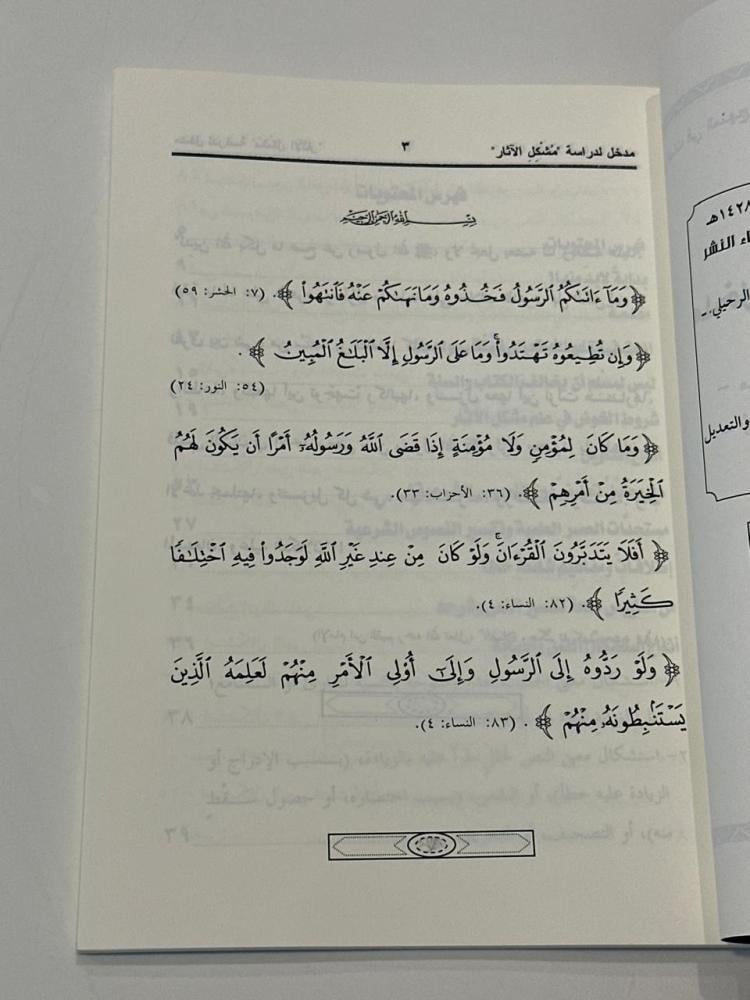 مدخل لدراسة "مُشْكِلِ الآثار" ٣
بِسْمِ اللَّهِ الرَّحْمَنِ الرَّحِيمِ
﴿ وَمَآ ءَاتَىٰكُمُ الرَّسُولُ فَخُذُوهُ وَمَا نَهَىٰكُمْ عَنْهُ فَانتَهُوا۟ ﴾. (٧: الحشر: ٥٩)
﴿ وَإِن تُطِيعُوهُ تَهْتَدُوا۟ۚ وَمَا عَلَى الرَّسُولِ إِلَّا الْبَلَـٰغُ الْمُبِينُ ﴾ .
(٥٤: النور: ٢٤)
﴿ وَمَا كَانَ لِمُؤْمِنٍ وَلَا مُؤْمِنَةٍ إِذَا قَضَى اللَّهُ وَرَسُولُهُۥٓ أَمْرًا أَن يَكُونَ لَهُمُ
الْخِيَرَةُ مِنْ أَمْرِهِمْ ﴾. (٣٦: الأحزاب: ٣٣).
﴿ أَفَلَا يَتَدَبَّرُونَ الْقُرْءَانَۚ وَلَوْ كَانَ مِنْ عِندِ غَيْرِ اللَّهِ لَوَجَدُوا۟ فِيهِ اخْتِلَـٰفًا
كَثِيرًا ﴾. (٨٢: النساء: ٤).
﴿ وَلَوْ رَدُّوهُ إِلَى الرَّسُولِ وَإِلَىٰٓ أُو۟لِى الْأَمْرِ مِنْهُمْ لَعَلِمَهُ الَّذِينَ
يَسْتَنۢبِطُونَهُۥ مِنْهُمْ ﴾ . (٨٣: النساء: ٤).
١٤٢٨هـ
اء النشر
الرحيلي. -
والتعديل